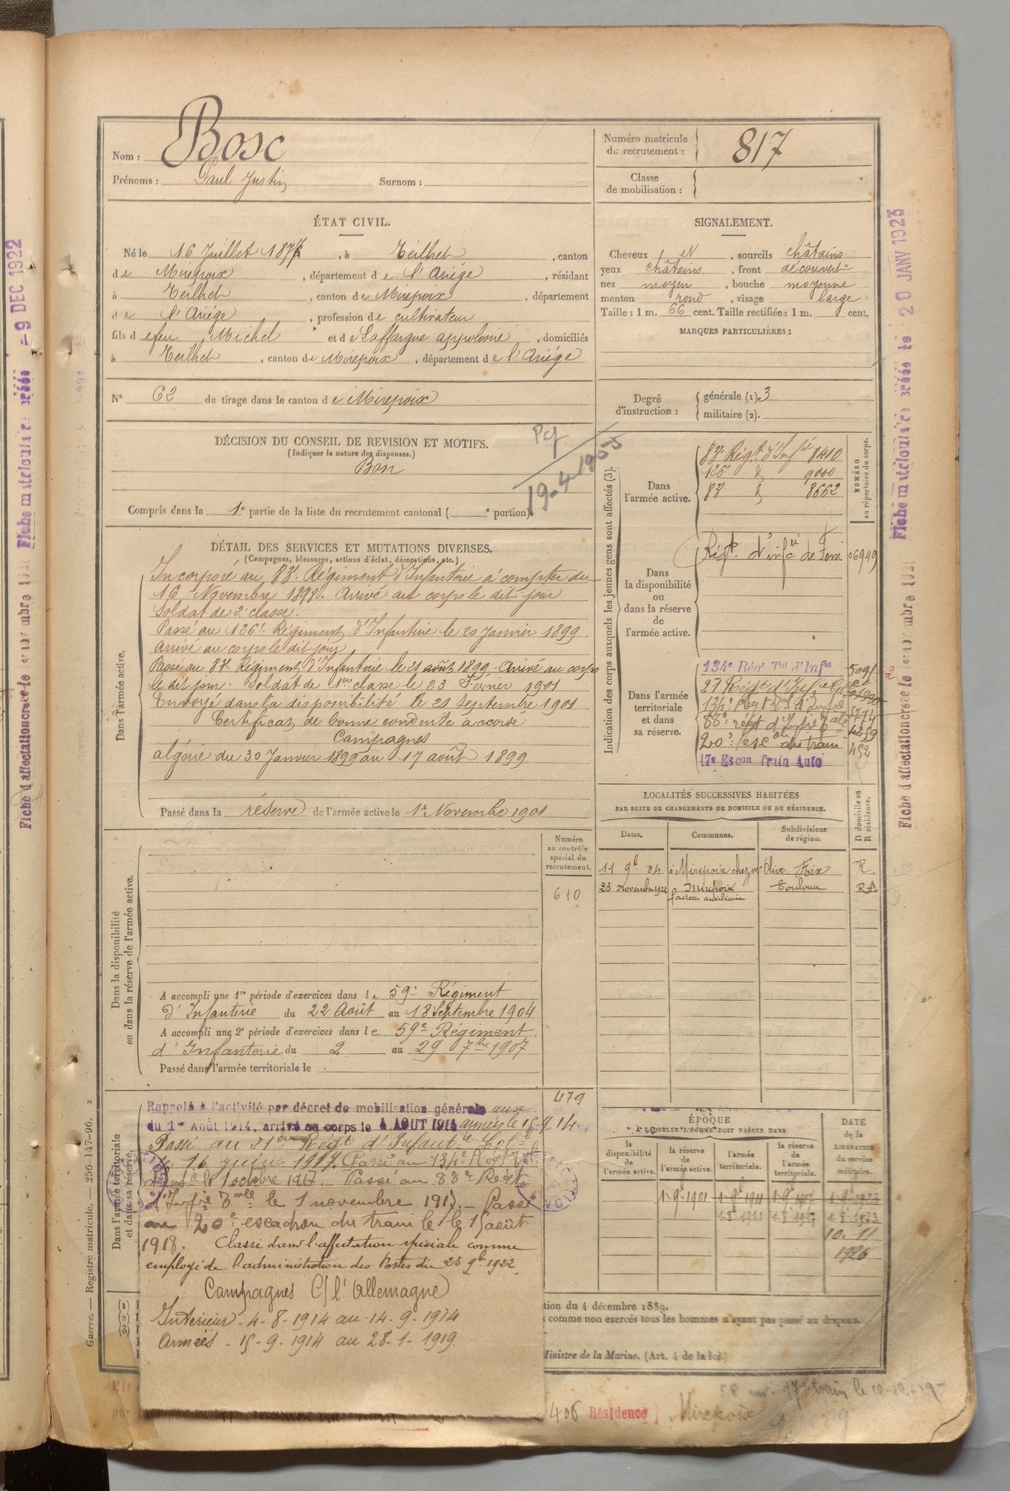 Bosc
Nom :
Prénoms : Paul Justin Surnom :
Numéro matricule du recrutement : 817
Classe de mobilisation :
ÉTAT CIVIL.
Né le 16 Juillet 187 , à Teilhet , canton
de Mirepoix , département de l'Ariège , résidant
à Teilhet , canton de Mirepoix , département
de l'Ariège , profession de cultivateur
fils de feu Michel et de Laffargue appolonie , domiciliés
à Teilhet , canton de Mirepoix , département de l'Ariége
N° 62 de tirage dans le canton de Mirepoix
SIGNALEMENT.
Cheveux et , sourcils châtains
yeux châtains , front découvert
nez moyen , bouche moyenne
menton rond , visage large
Taille : 1 m. 66 cent. Taille rectifiée : 1 m. cent.
MARQUES PARTICULIÈRES :
Degré d'instruction : générale (1). 3
militaire (2).
DÉCISION DU CONSEIL DE REVISION ET MOTIFS.
(Indiquer la nature des dispenses.)
Bon
Compris dans la 1e partie de la liste du recrutement cantonal ( e portion).
19.4.1955
DÉTAIL DES SERVICES ET MUTATIONS DIVERSES.
(Campagnes, blessures, actions d'éclat, décorations, etc.)
Dans l'armée active.
Incorporé au 83e Régiment d'Infanterie à compter du
16 Novembre 1898. Arrivé au corps le dit jour
Soldat de 2e classe.
Passé au 126e Régiment d'Infanterie le 20 Janvier 1899
arrivé au corps le dit jour
Passé au 83e Régiment d'Infanterie le 21 août 1899. Arrivé au corps
le dit jour. Soldat de 1ere classe le 23 Février 1901
Envoyé dans la disponibilité le 21 Septembre 1901
Certificat de bonne conduite accordé
Campagnes
algérie du 30 Janvier 1899 au 17 août 1899
Passé dans la réserve de l'armée active le 1er Novembre 1901
Indication des corps auxquels les jeunes gens sont affectés (3).
NUMÉRO au répertoire du corps.
Dans l'armée active.
83e Régt d'Infie 8410
126e d° 9000
83 d° 8662
Dans la disponibilité ou dans la réserve de l'armée active.
Régt d'infie de Foix 06949
Dans l'armée territoriale et dans sa réserve.
134e Régt Ter d'Infie
88e régt d'Infie
20e esc on du train 452
17e Escon Train Auto
LOCALITÉS SUCCESSIVES HABITÉES
PAR SUITE DE CHANGEMENTS DE DOMICILE OU DE RÉSIDENCE.
Dates. Communes. Subdivisions de région. D domicile ou R résidence.
11 9b 04 à Mirepoix chez Mr Olive Foix R
23 novembre 1922 Mirepoix Toulouse RA
facteur auxiliaire
Dans la disponibilité ou dans la réserve de l'armée active.
Numéro au contrôle spécial du recrutement.
610
A accompli une 1re période d'exercices dans le 59e Régiment
d'Infanterie du 22 Août au 18 Septembre 1904
A accompli une 2e période d'exercices dans le 59e Régiment
d'Infanterie du 2 au 29 7bre 1907
Passé dans l'armée territoriale le
479
Dans l'armée territoriale et dans sa réserve.
Rappelé à l'activité par décret de mobilisation générale aux
du 1er Août 1914, arrivé au corps le 4 AOUT 1914 armées le 15.9.14.
Passé au
16 juin 1917. Passé au 134e
le 1 octobre 1917. Passé au 88e Régt
d'Infie le 1 novembre 1917. Passé
au 20e escadron du train le 15 août
1918. Classé dans l'affectation spéciale comme
employé de l'administration des Postes du 23 9b 1922.
Campagnes C/ l'Allemagne
Intérieur 4-8-1914 au 14-9-1914
Armées 15-9-1914 au 28-1-1919
ÉPOQUE
À LAQUELLE L'HOMME DOIT PASSER DANS
la disponibilité de l'armée active. la réserve de l'armée active. l'armée territoriale. la réserve de l'armée territoriale.
DATE de la LIBÉRATION du service militaire.
10.11
1926
tion du 4 décembre 1889.
comme non exercés tous les hommes n'ayant pas passé au drapeau.
Ministre de la Marine. (Art. 4 de la loi)
406 Résidence Mirepoix
Guerre. — Registre matricule. — 256-147-96.
9 DEC 1922
20 JANV 1923